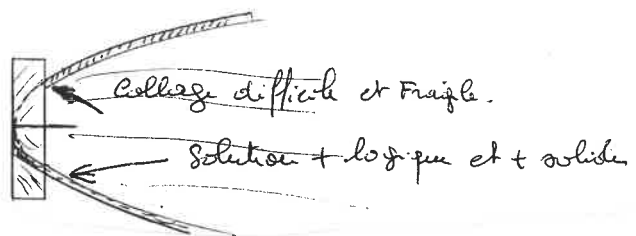 Collage difficile et Fragile.
Solution + logique et + solide